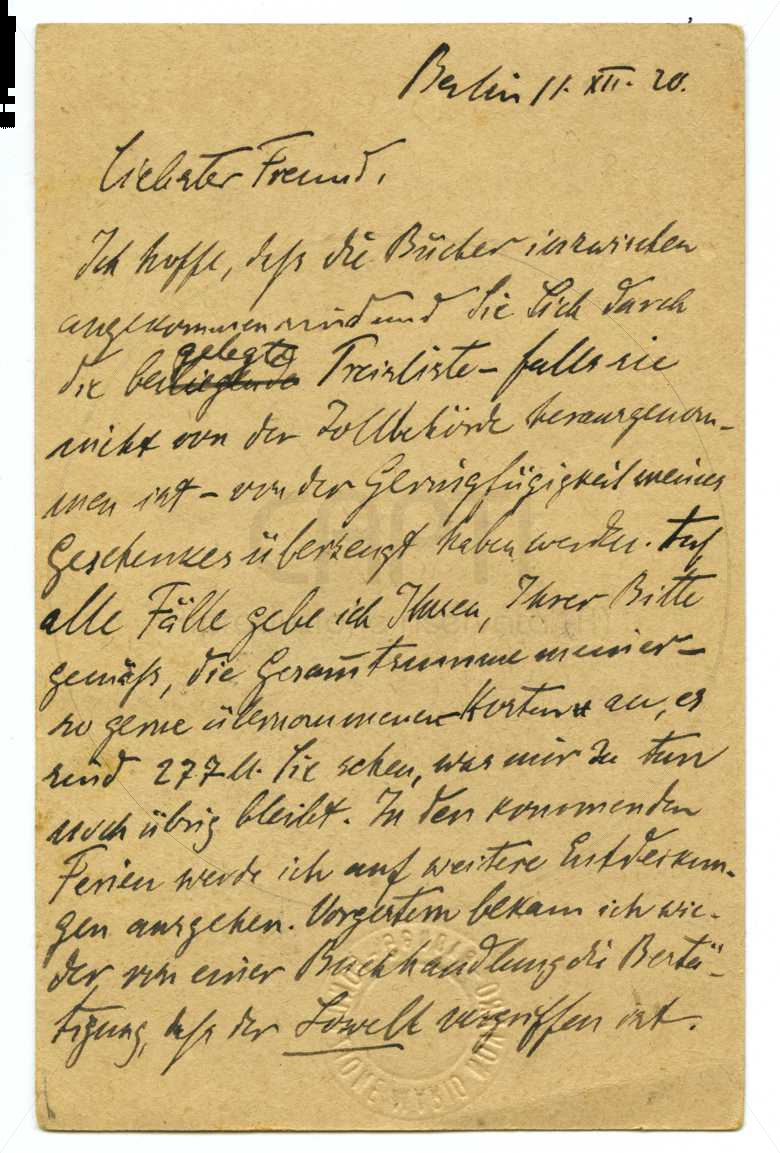 Berlin 11. XII. 20.
Liebster Freund,
Ich hoffe, daß die Bücher inzwischen
angekommen sind und Sie Sich durch
die bei
gelegte
liegende Preisliste – falls sie
nicht von der Zollbehörde herausgenom-
men ist – von der Geringfügigkeit meines
Geschenkes überzeugt haben werden. Auf
alle Fälle gebe ich Ihnen, Ihrer Bitte
gemäß, die Gesamtsumme meiner –
so gerne übernommenen – Kosten an, es
sind 277 M. Sie sehen, was mir zu tun
noch übrig bleibt. In den kommenden
Ferien werde ich auf weitere Entdeckun-
gen ausgehen. Vorgestern bekam ich wie-
der von einer Buchhandlung die Bestä-
tigung, daß der Lowell vergriffen ist.